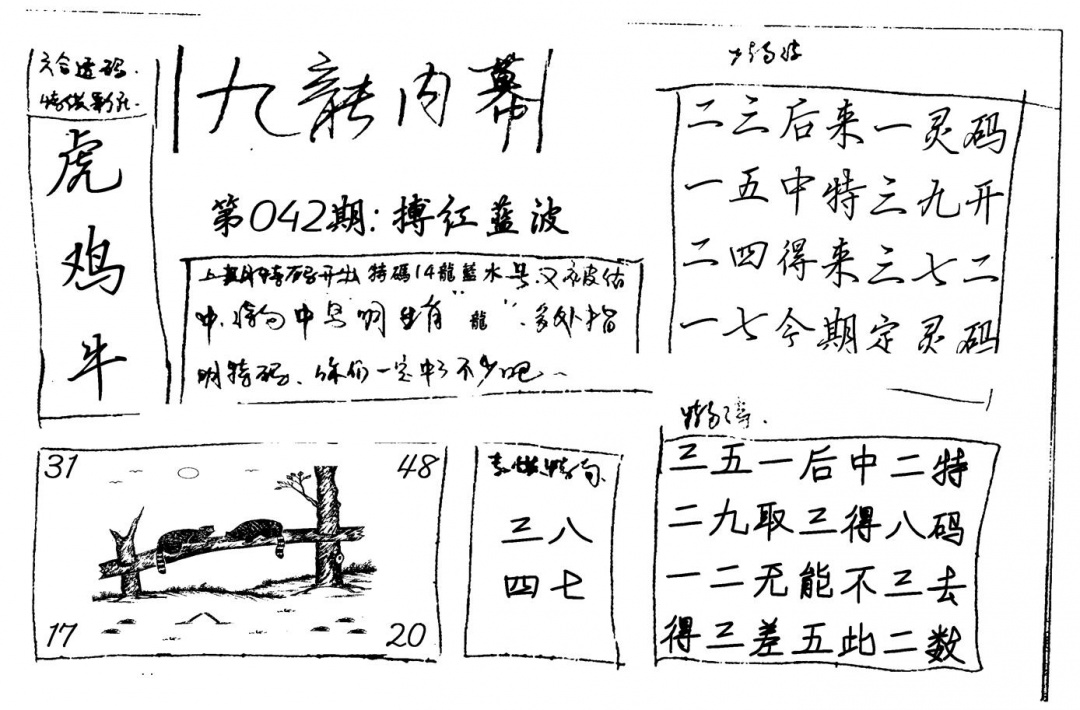 六合透码
虎
鸡
牛
九龍内幕
第042期:搏红蓝波
上期特码开出特碼14龍蓝水号又被估
中,中号明生肖"龍".多处指
明特码、你们一定中了不少吧
二三后来一灵码
一五中特三九开
二四得来三七二
一七今期定灵码
31
48
17
20
三八
四七
三五一后中二特
二九取三得八码
一二无能不三去
得三差五此二数